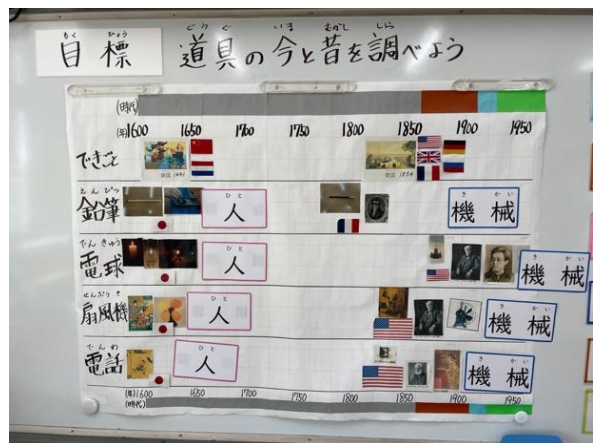 もく ひょう
目標
どうぐ いま むかし しら
道具の今と昔を調べよう
(時代)
(年)1600 1650 1700 1750 1800 1850 1900 1950
できごと
1641
1854
えんぴつ
鉛筆
ひと
人
き かい
機械
でんきゅう
電球
ひと
人
き かい
機械
せんぷうき
扇風機
ひと
人
き かい
機械
でんわ
電話
ひと
人
き かい
機械
(年)1600 1650 1700 1750 1800 1850 1900 1950
(時代)